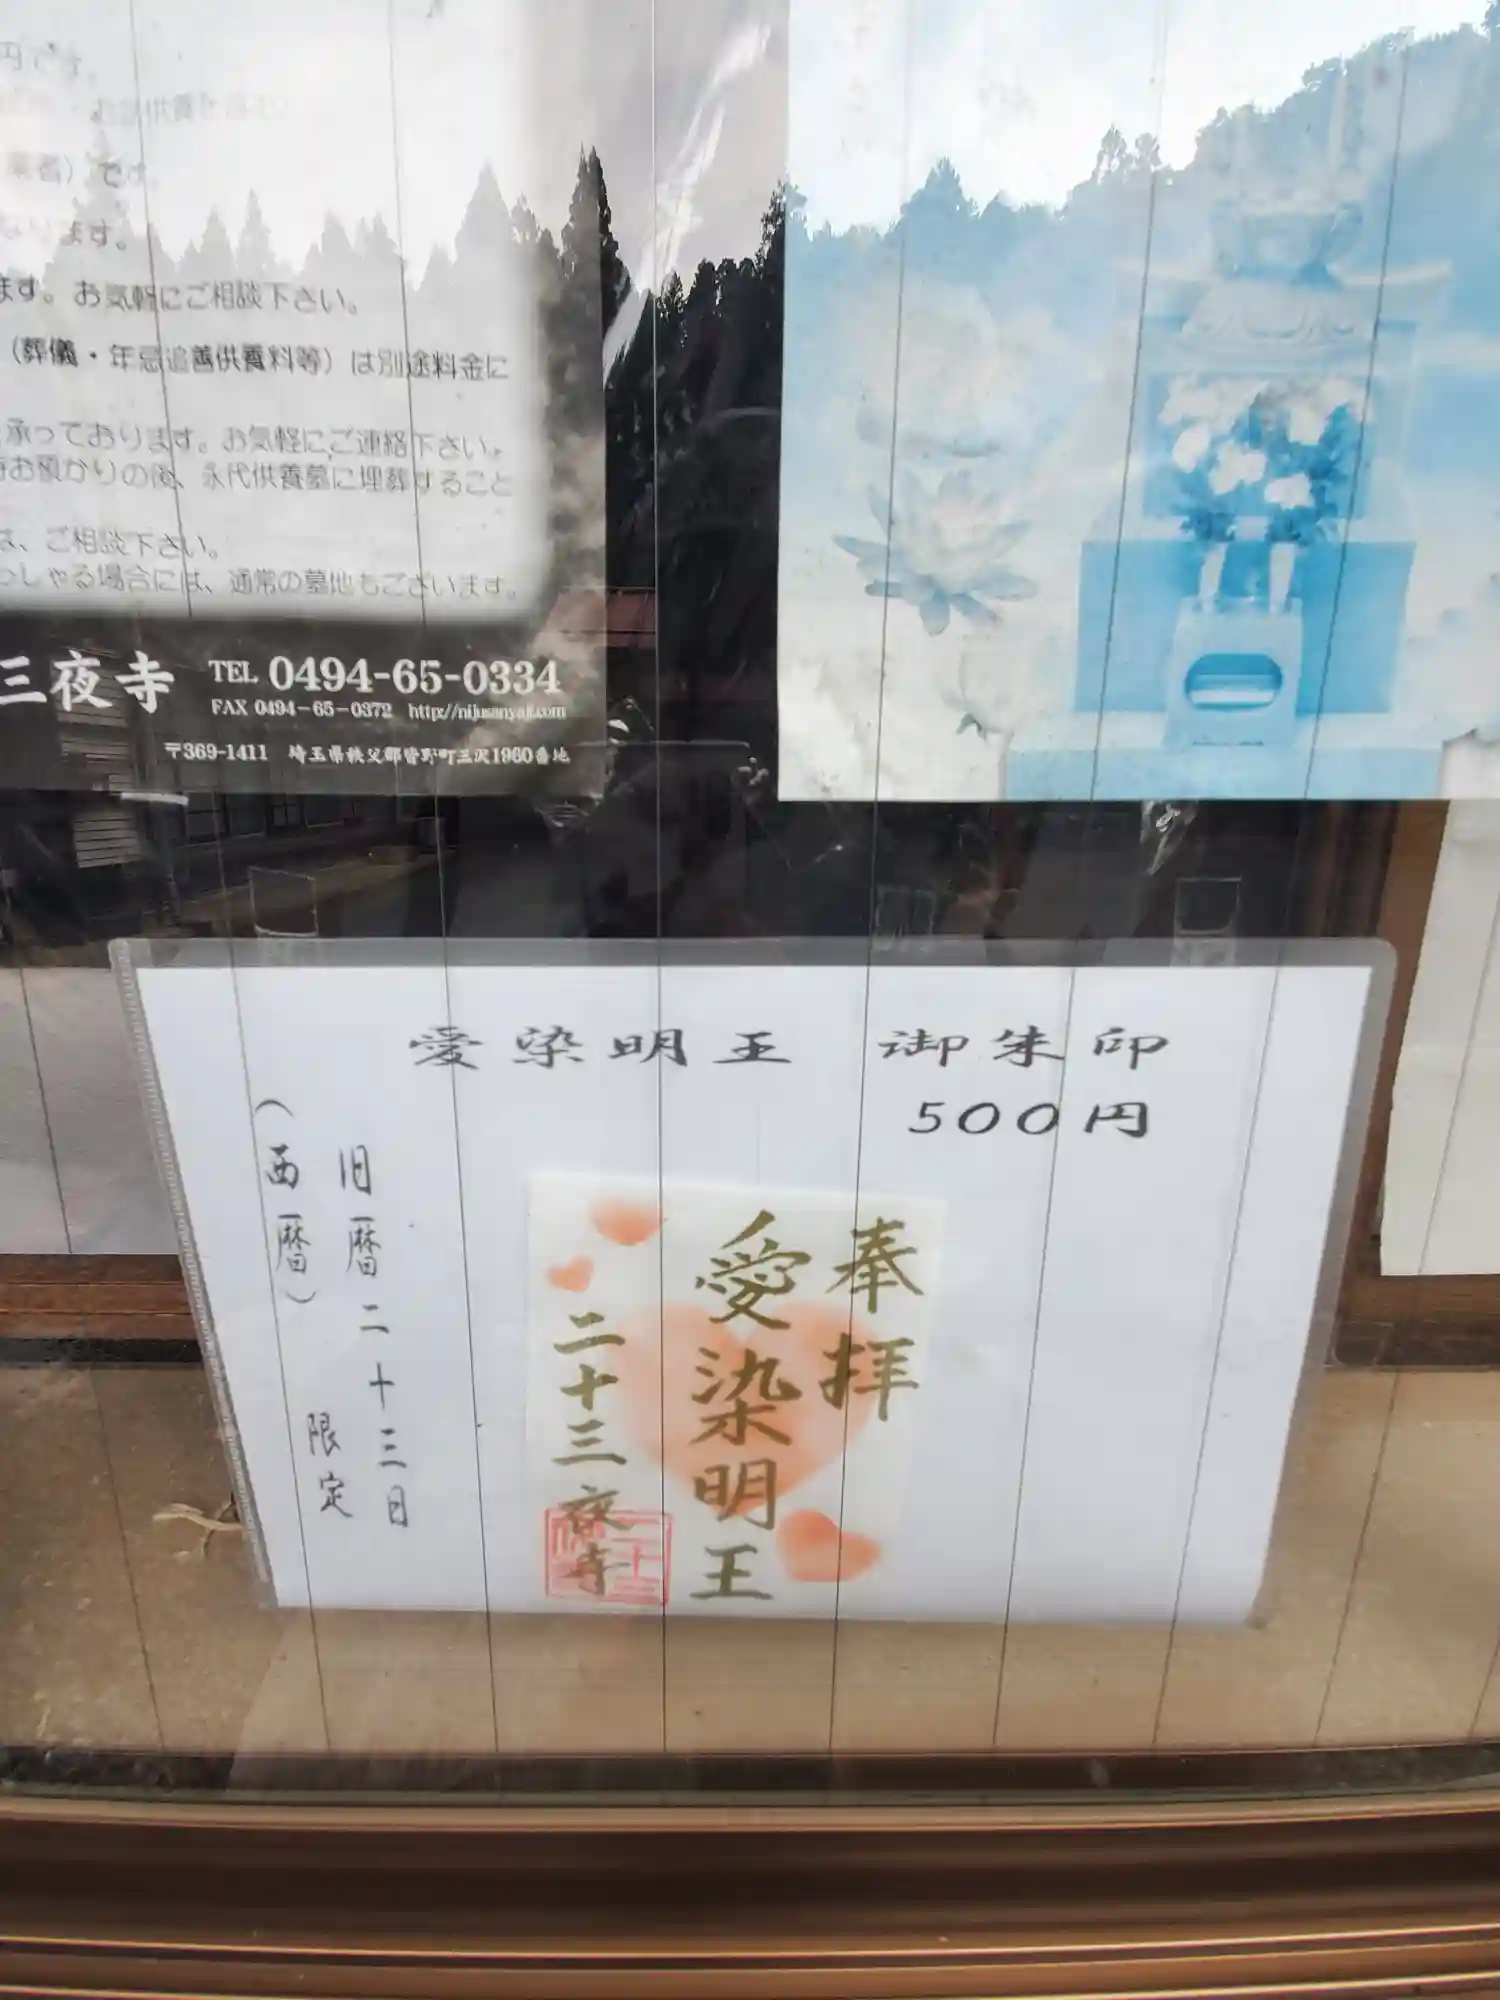 円です。
お急供養と
業者）です
なります。
ます。お気軽にご相談下さい。
（葬儀・年忌追善供養料等）は別途料金に
承っております。お気軽にご連絡下さい。
お預かりの後、永代供養墓に埋葬すること
は、ご相談下さい。
しゃる場合には、通常の墓地もございます。
三夜寺 TEL 0494-65-0334
FAX 0494-65-0372 http://nijusanyaji.com
〒369-1411 埼玉県秩父郡皆野町三沢1960番地
愛染明王 御朱印
500円
奉拝
愛染明王
二十三夜寺
旧暦二十三日
（西暦） 限定